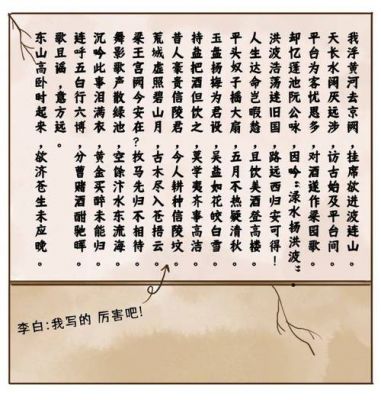 我浮黄河去京阙，挂席欲进波连山。
天长水阔厌远涉，访古始及平台间。
平台为客忧思多，对酒遂作梁园歌。
却忆蓬池阮公咏，因吟：“渌水扬洪波”。
洪波浩荡迷旧国，路远西归安可得！
人生达命岂暇愁，且饮美酒登高楼。
平头奴子摇大扇，五月不热疑清秋。
玉盘杨梅为君设，吴盐如花皎白雪。
持盐把酒但饮之，莫学夷齐事高洁。
昔人豪贵信陵君，今人耕种信陵坟。
荒城虚照碧山月，古木尽入苍梧云。
梁王宫阙今安在？枚马先归不相待。
舞影歌声散绿池，空馀汴水东流海。
沉吟此事泪满衣，黄金买醉未能归。
连呼五白行六博，分曹赌酒酣驰晖。
歌且谣，意方远。
东山高卧时起来，欲济苍生未应晚。
李白:我写的 厉害吧!